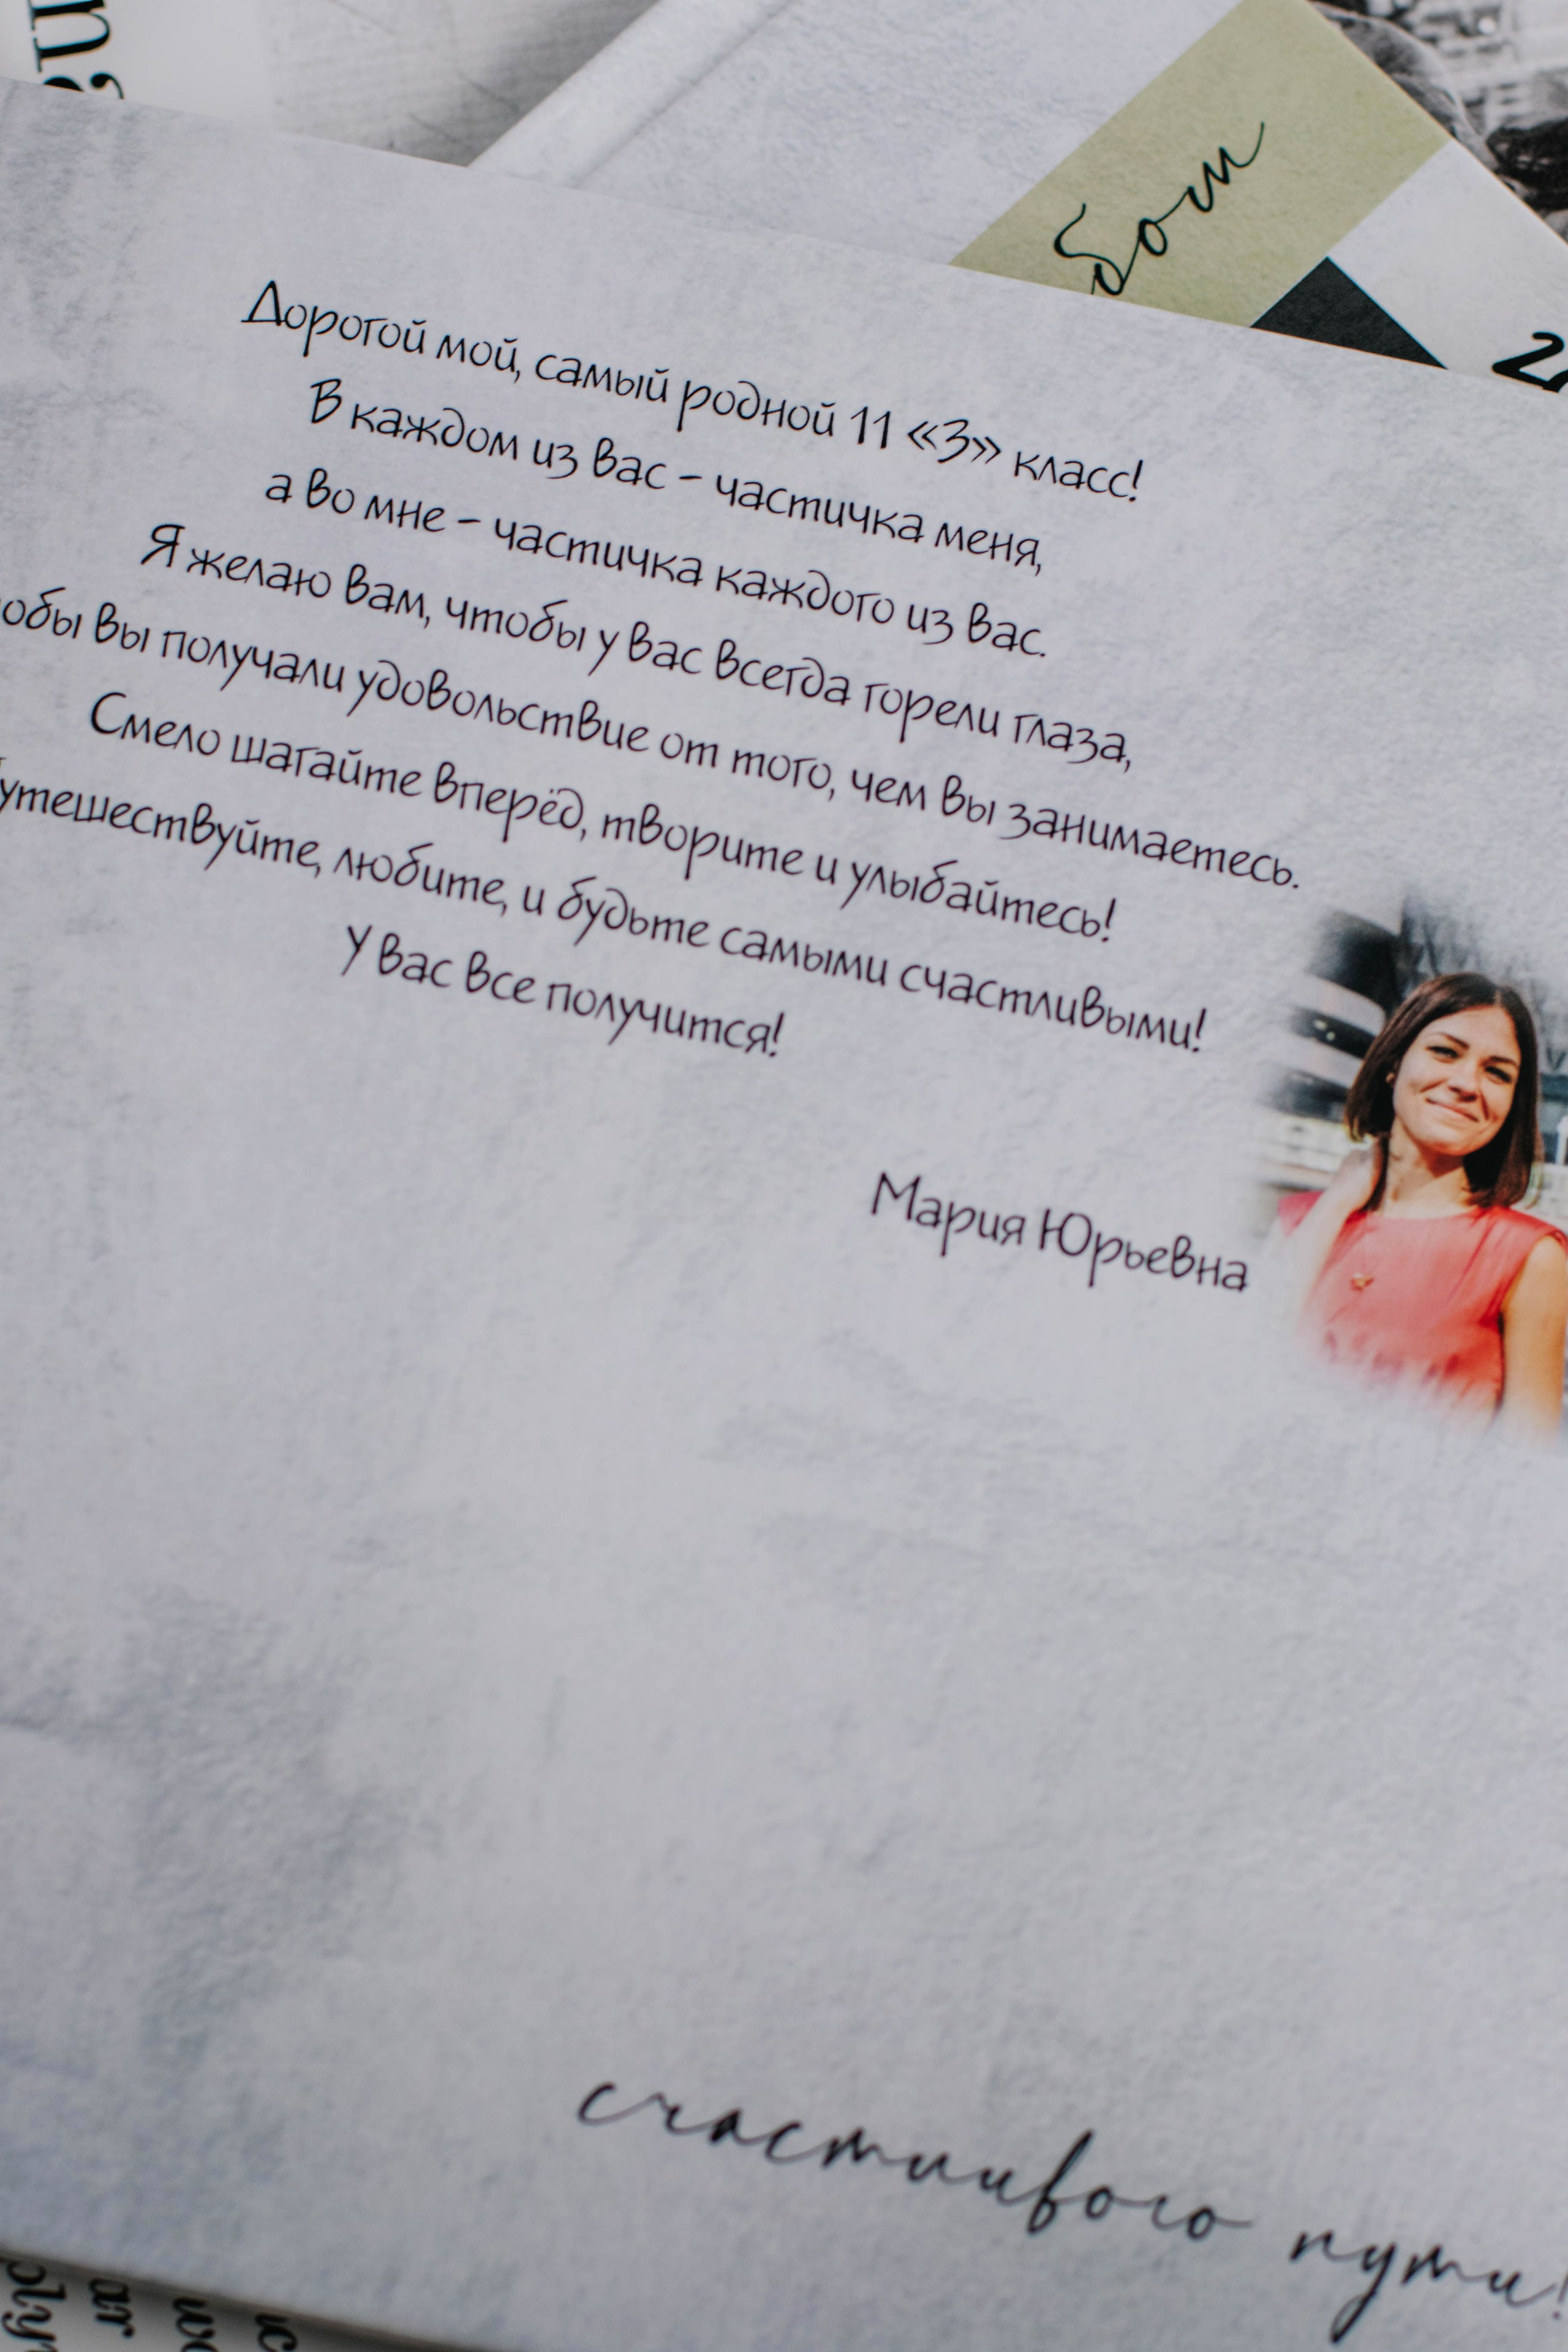 бот
Дорогой мой, самый родной 11 «З» класс!
В каждом из вас - частичка меня,
а во мне - частичка каждого из вас.
Я желаю вам, чтобы у вас всегда горели глаза,
обы вы получали удовольствие от того, чем вы занимаетесь.
Смело шагайте вперёд, творите и улыбайтесь!
утешествуйте, любите, и будьте самыми счастливыми!
У вас все получится!
Мария Юрьевна
счастливого пути!